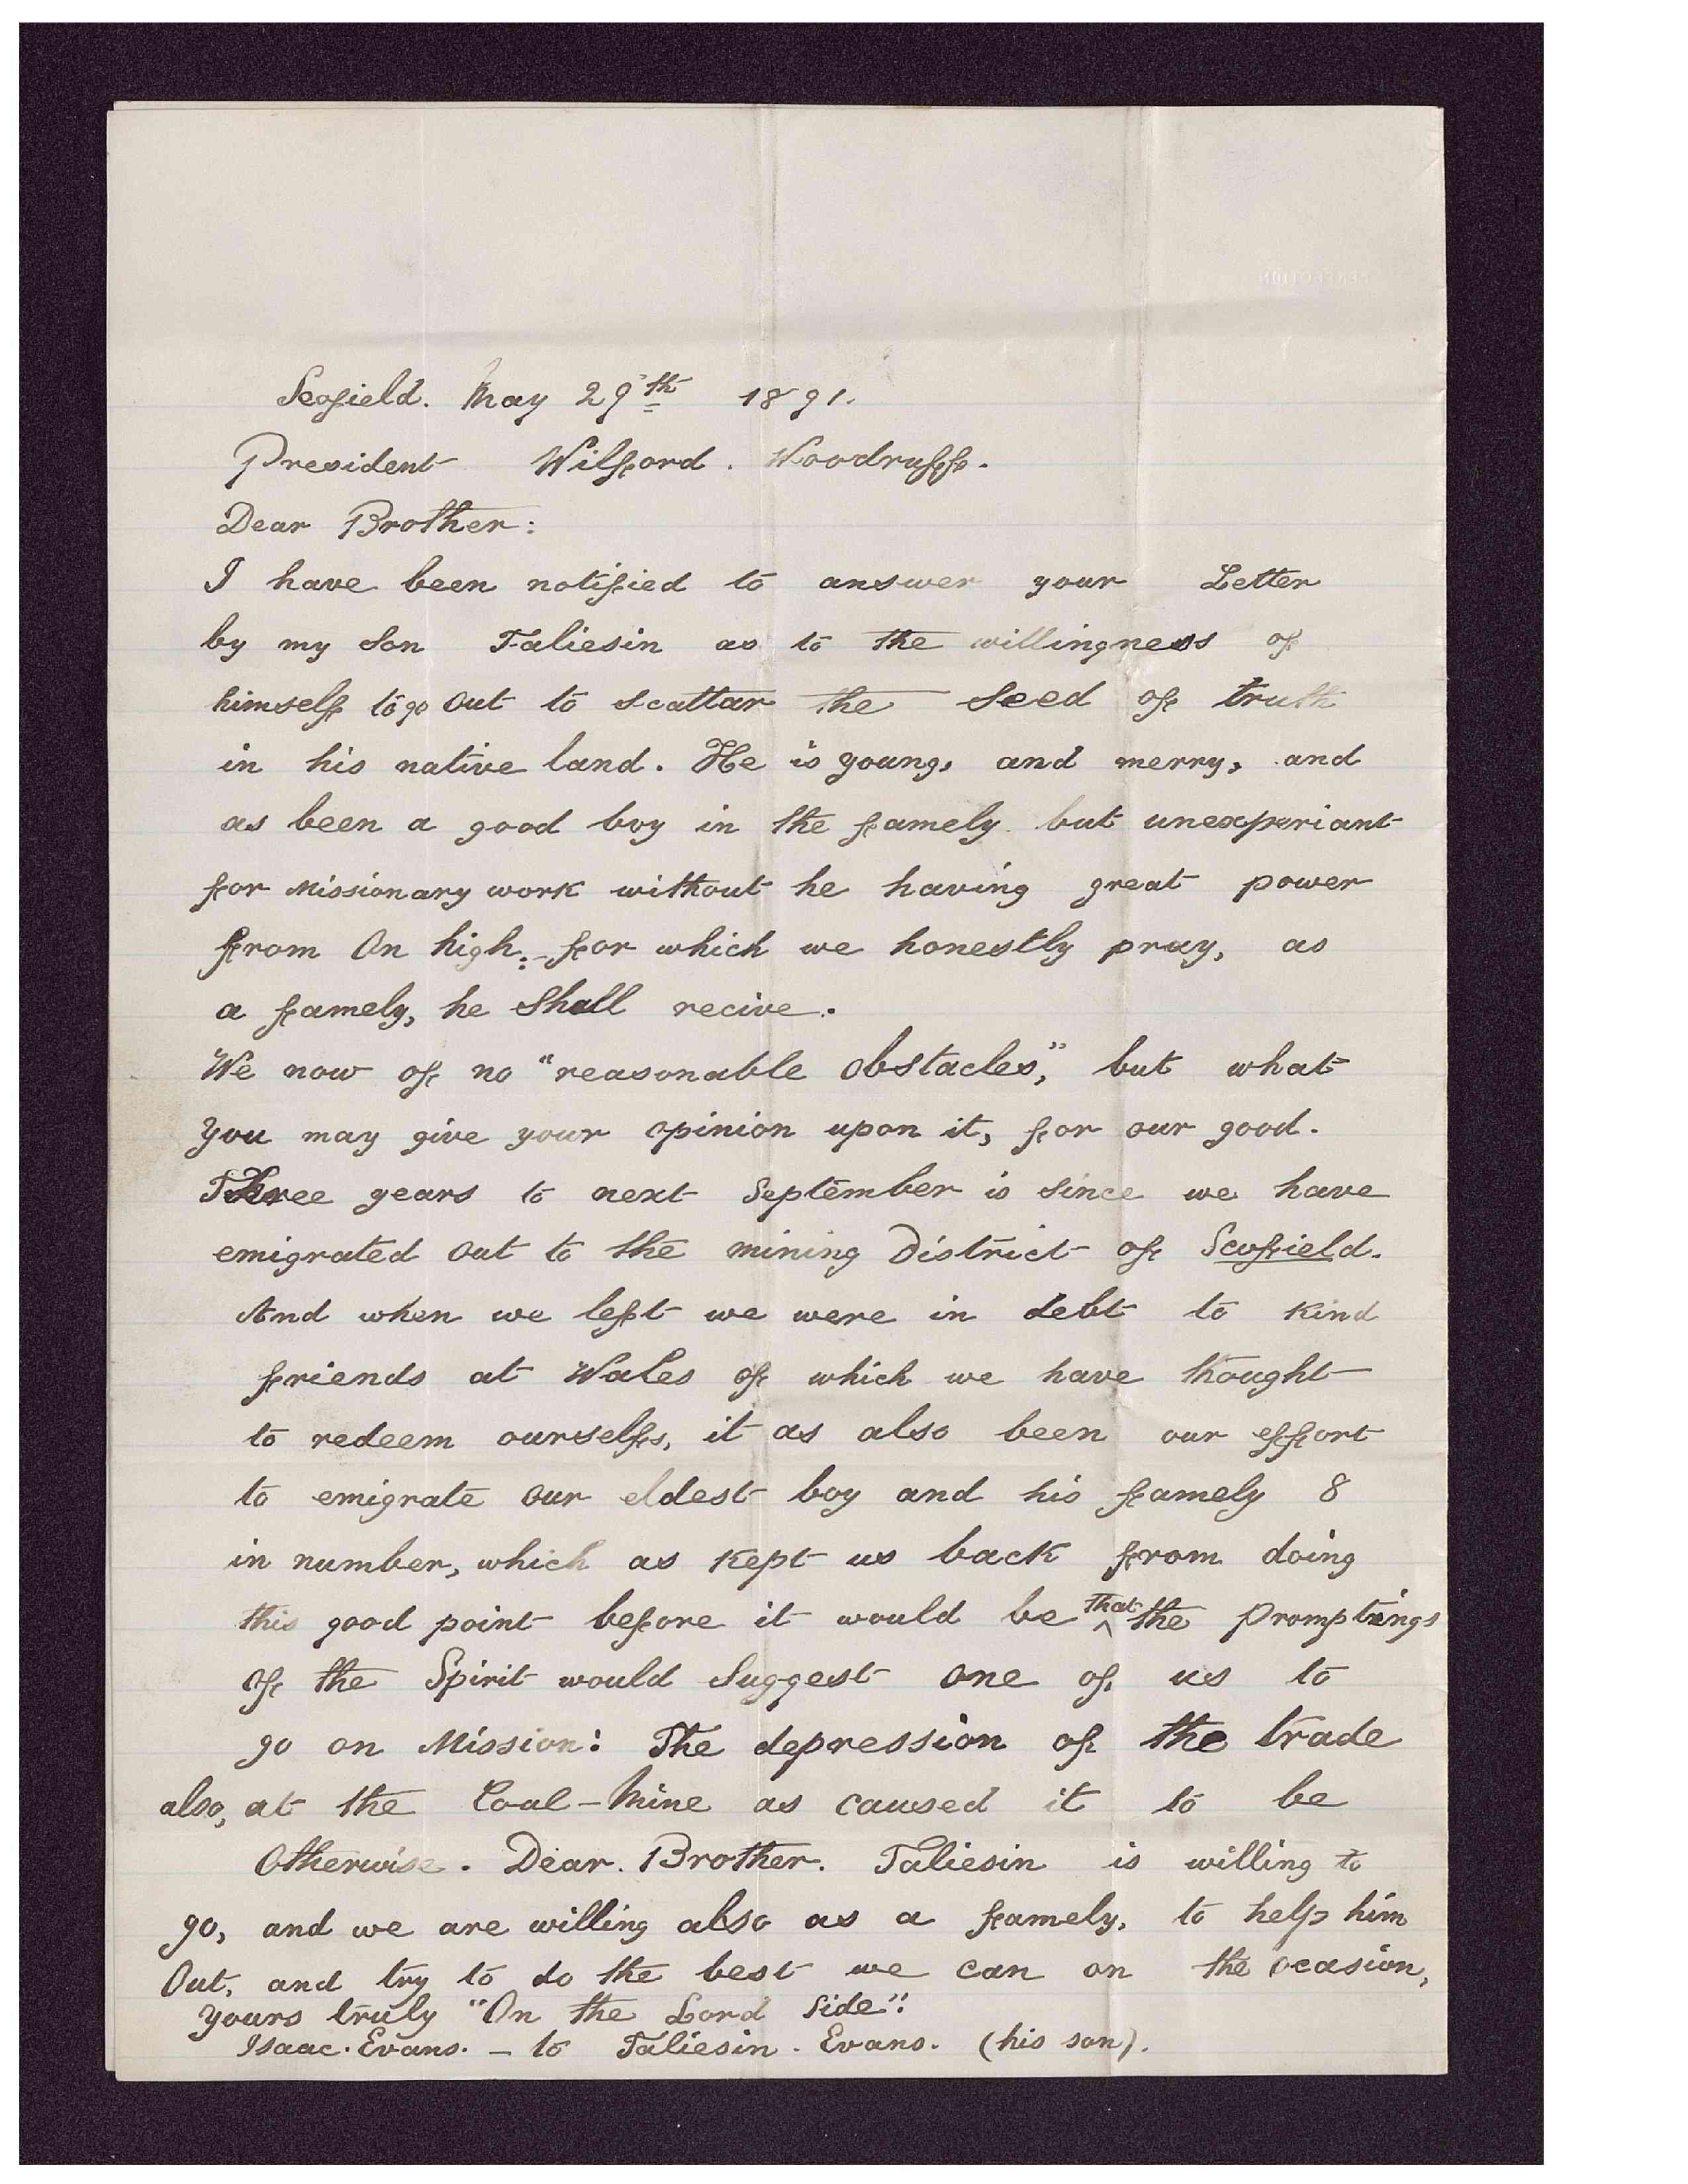 Scofield. May 29th 1891.
President Wilford. Woodruff.
Dear Brother:
I have been notified to answer your Letter
by my Son Taliesin as to the willingness of
himself to go out to scattar the Seed of truth
in his native land. He is young, and merry, and
as been a good boy in the famely but unexperiant
for Missionary work without he having great power
from On high:- for which we honestly pray, as
a famely, he Shall recive.
We now of no "reasonable obstacles," but what
you may give your opinion upon it, for our good.
Three years to next September is since we have
emigrated out to the mining District of Scofield.
And when we left we were in debt to kind
friends at Wales of which we have thought
to redeem ourselfs, it as also been our effort
to emigrate our eldest boy and his famely 8
in number, which as kept us back from doing
this good point before it would be that the promptings
of the Spirit would Suggest one of us to
go on Mission: The depression of the trade
also, at the Coal-Mine as caused it to be
Otherwise. Dear. Brother. Taliesin is willing to
go, and we are willing also as a famely, to help him
Out, and try to do the best we can on the ocasion,
yours truly "On the Lord Side":
Isaac. Evans. - to Taliesin. Evans. (his son).